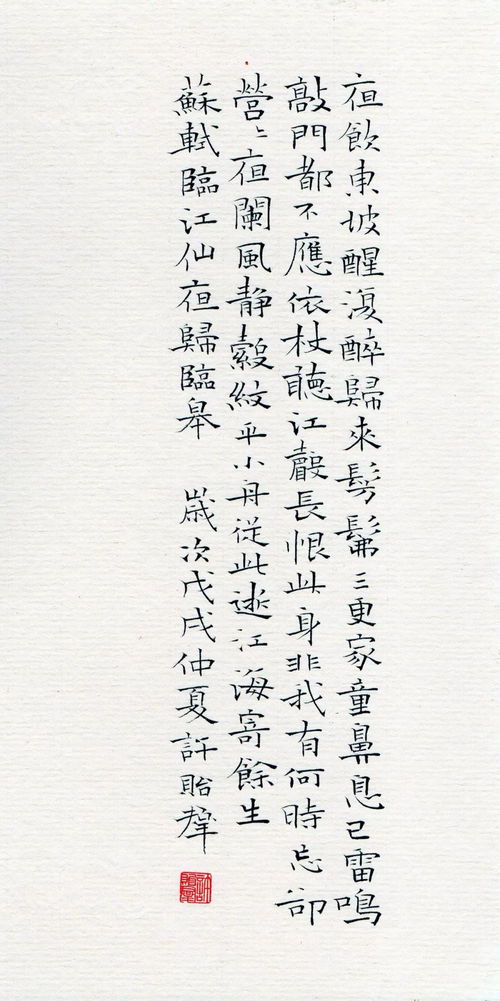 夜飲東坡醒復醉歸來髣髴三更家童鼻息已雷鳴
敲門都不應依杖聽江聲長恨此身非我有何時忘卻
營〻夜闌風静縠紋平小舟從此逝江海寄餘生
蘇軾臨江仙夜歸臨皋 歲次戊戌仲夏許貽